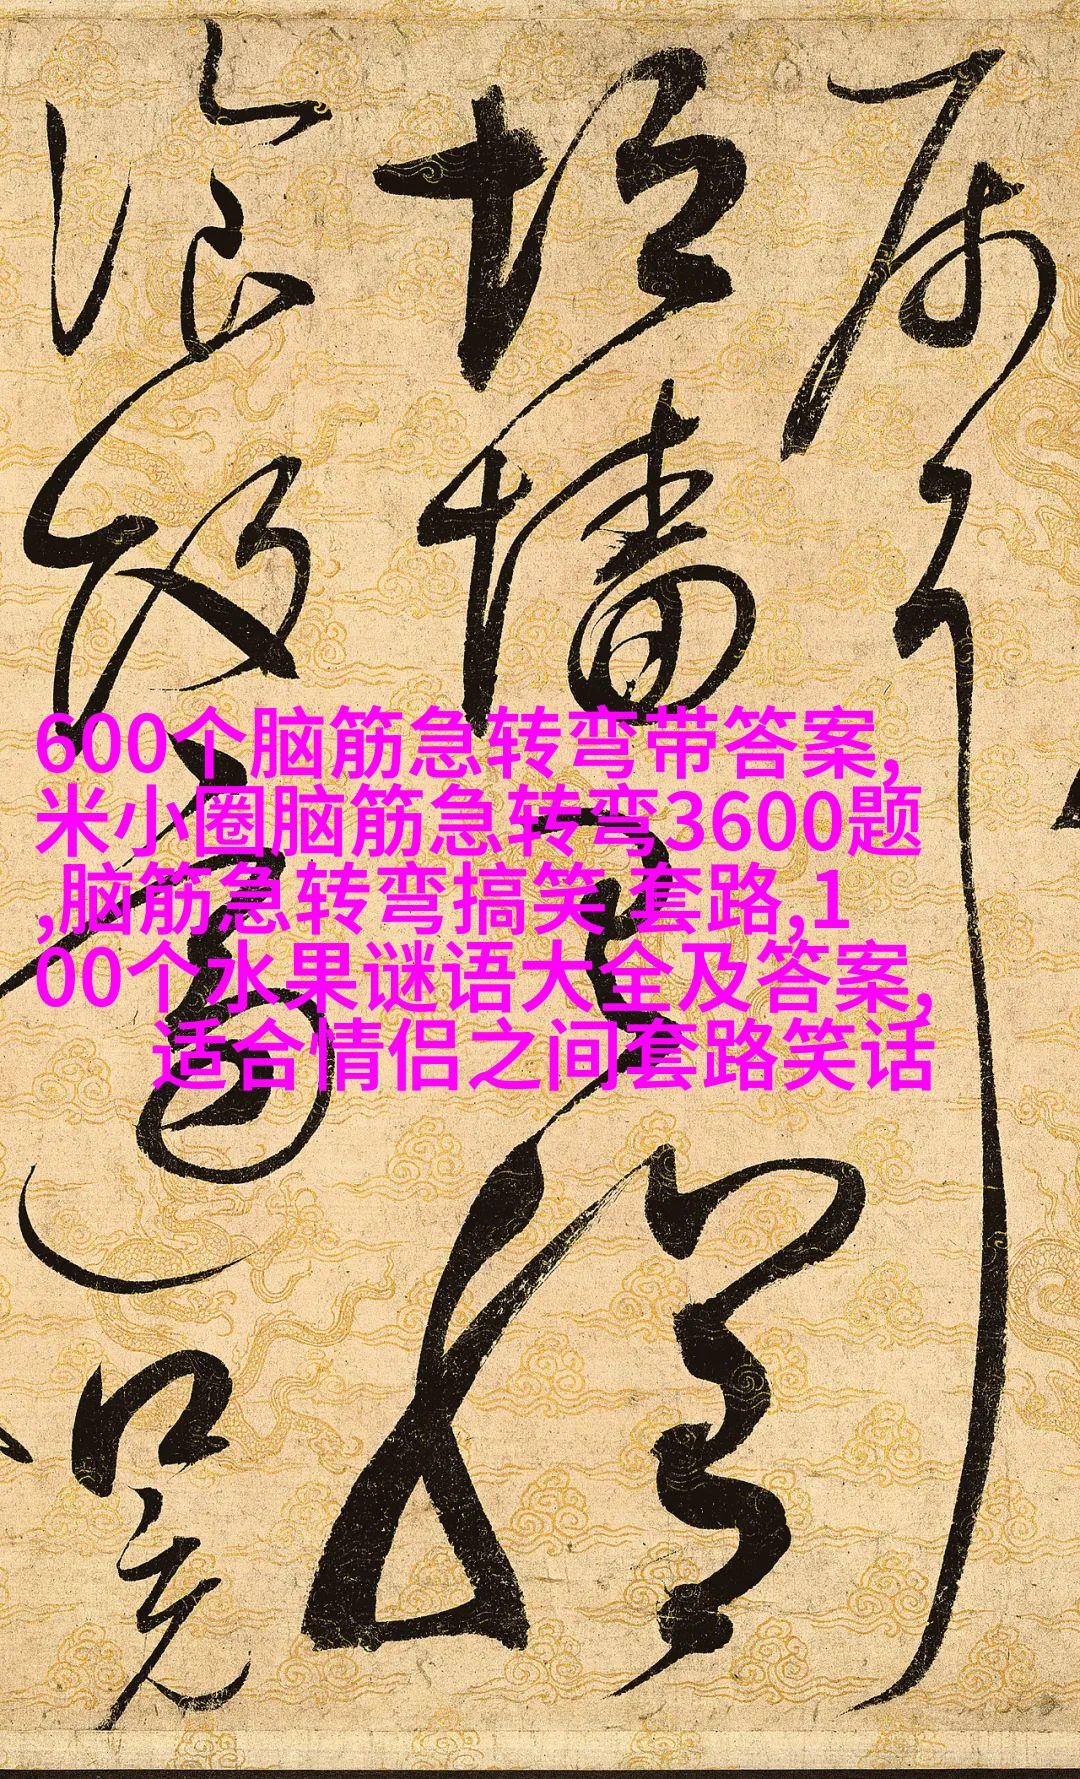 属耳
垣墙具膳
飡飯適口充
600个脑筋急转弯带答案,
米小圈脑筋急转弯3600题
,脑筋急转弯搞笑 套路,1
00个水果谜语大全及答案,
适合情侣之间套路笑话